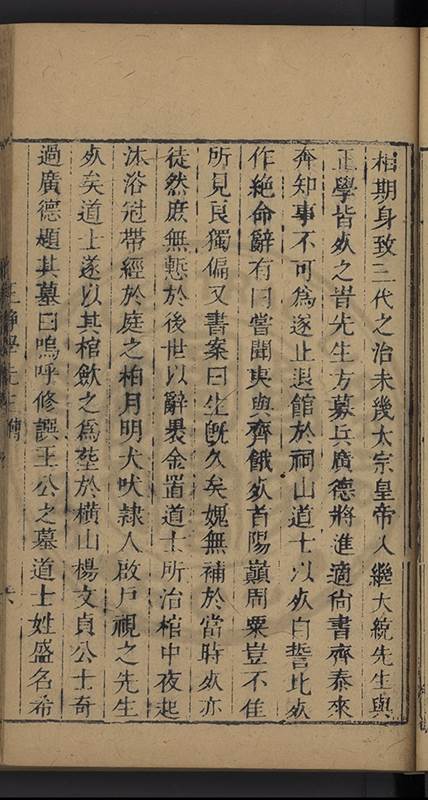 相期身致三代之治未幾太宗皇帝入繼大統先生與
正學皆死之昔先生方募兵廣德將進適尚書齊泰來
奔知事不可爲遂止退館於祠山道士以死自誓比死
作絶命辭有曰嘗聞夷與齊餓死首陽巔周粟豈不佳
所見良獨偏又書案曰生旣久矣媿無補於當時死亦
徒然庶無慙於後世以辭褁金置道士所治棺中夜起
沐浴冠帶經於庭之柏月明犬吠隷人啟戶視之先生
死矣道士遂以其棺斂之爲塟於横山楊文貞公士奇
過廣德題其墓曰嗚呼修譔王公之墓道士姓盛名希